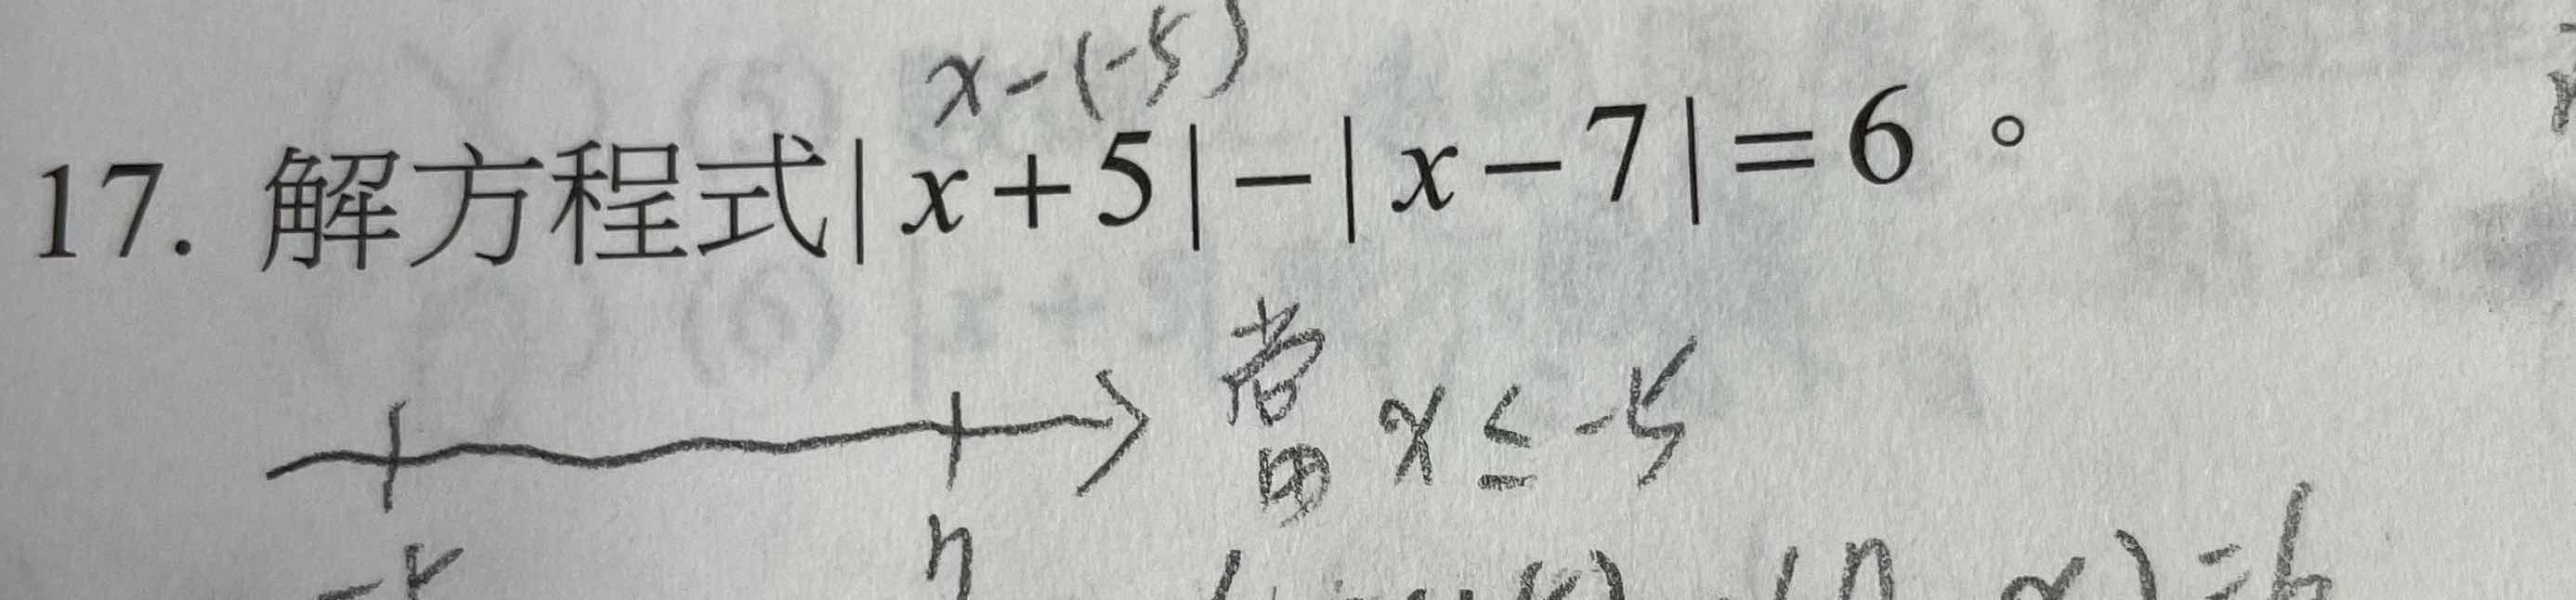 x-(-5)
17. 解方程式|x+5|-|x-7|=6。
當 x≤-5
-5 7
)=6